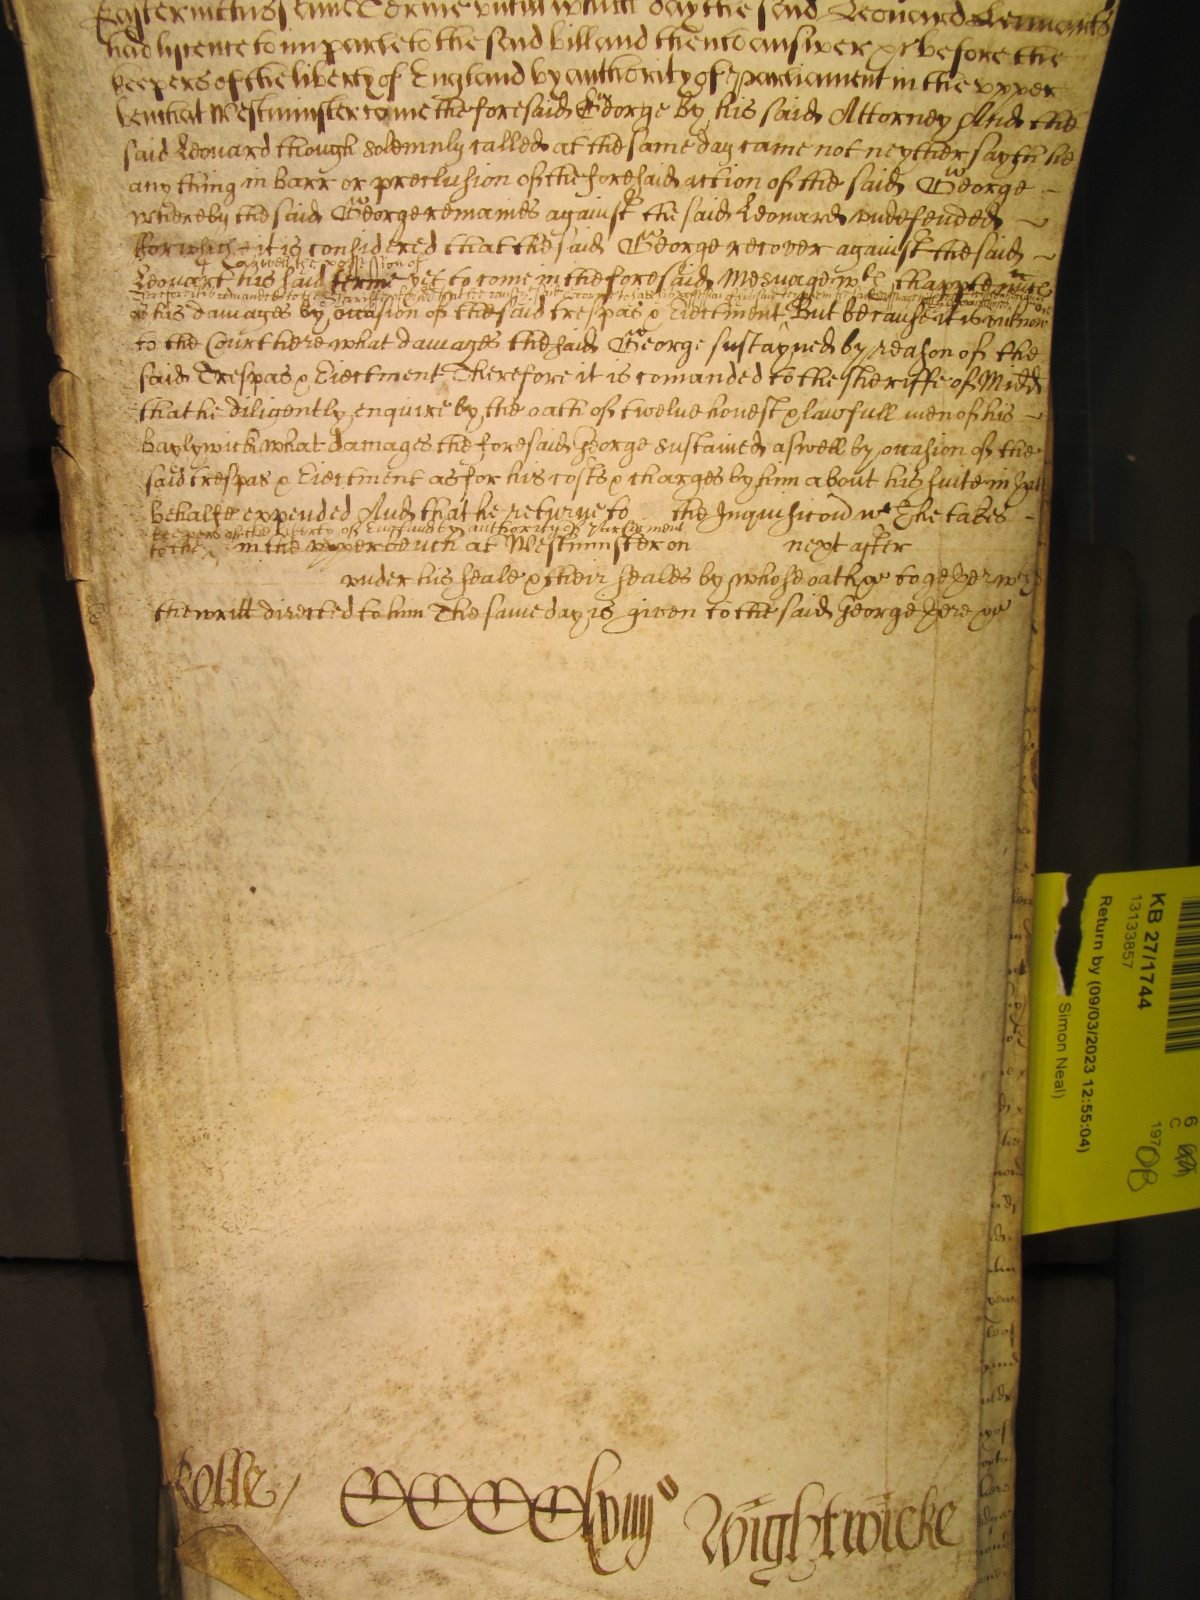 Easter in this same Terme untill which day the said Leonard
had lycence to imparle to the said bill and then to answer &c before the
keepers of the liberty of England by authority of parliament in the upper
bench at Westminster came the foresaid George by his said Attorney And the
said Leonard though solemnly called at the same day came not neyther sayth he
any thing in barr or preclusion of the foresaid action of the said George
whereby the said George remaines against the said Leonard undefended
for which it is considered that the said George recover against the said
aswell the possession of
Leonart his said terme yet to come in the foresaid Mesuage wth thappten'nces
as his damages by occasion of the said trespas & Eiectment But because it is unknowne
to the Court here what damages the said George sustayned by reason of the
said Trespas & Eiectment Therefore it is comanded to the sheriffe of Midd
that he diligently enquire by the oath of twelve honest & lawfull men of his
baylywick what damages the foresaid George sustained aswell by occasion of the
said trespas & Eiectment as for his costs & charges by him about his suite in that
behalfe expended And that he returne to the Inquisicoid wch he takes
keepers of the liberty of England by authority of Parliament
to the in the upper bench at Westminster on next after
under his seale & their seales by whose oath &c together wth
the writt directed to him The same day is given to the said George here &c
Rolle / CCCClviiijo Wightwicke
KB 27/1744
13133857
Return by (09/03/2023 12:55:04)
Simon Neal)
6
C
197